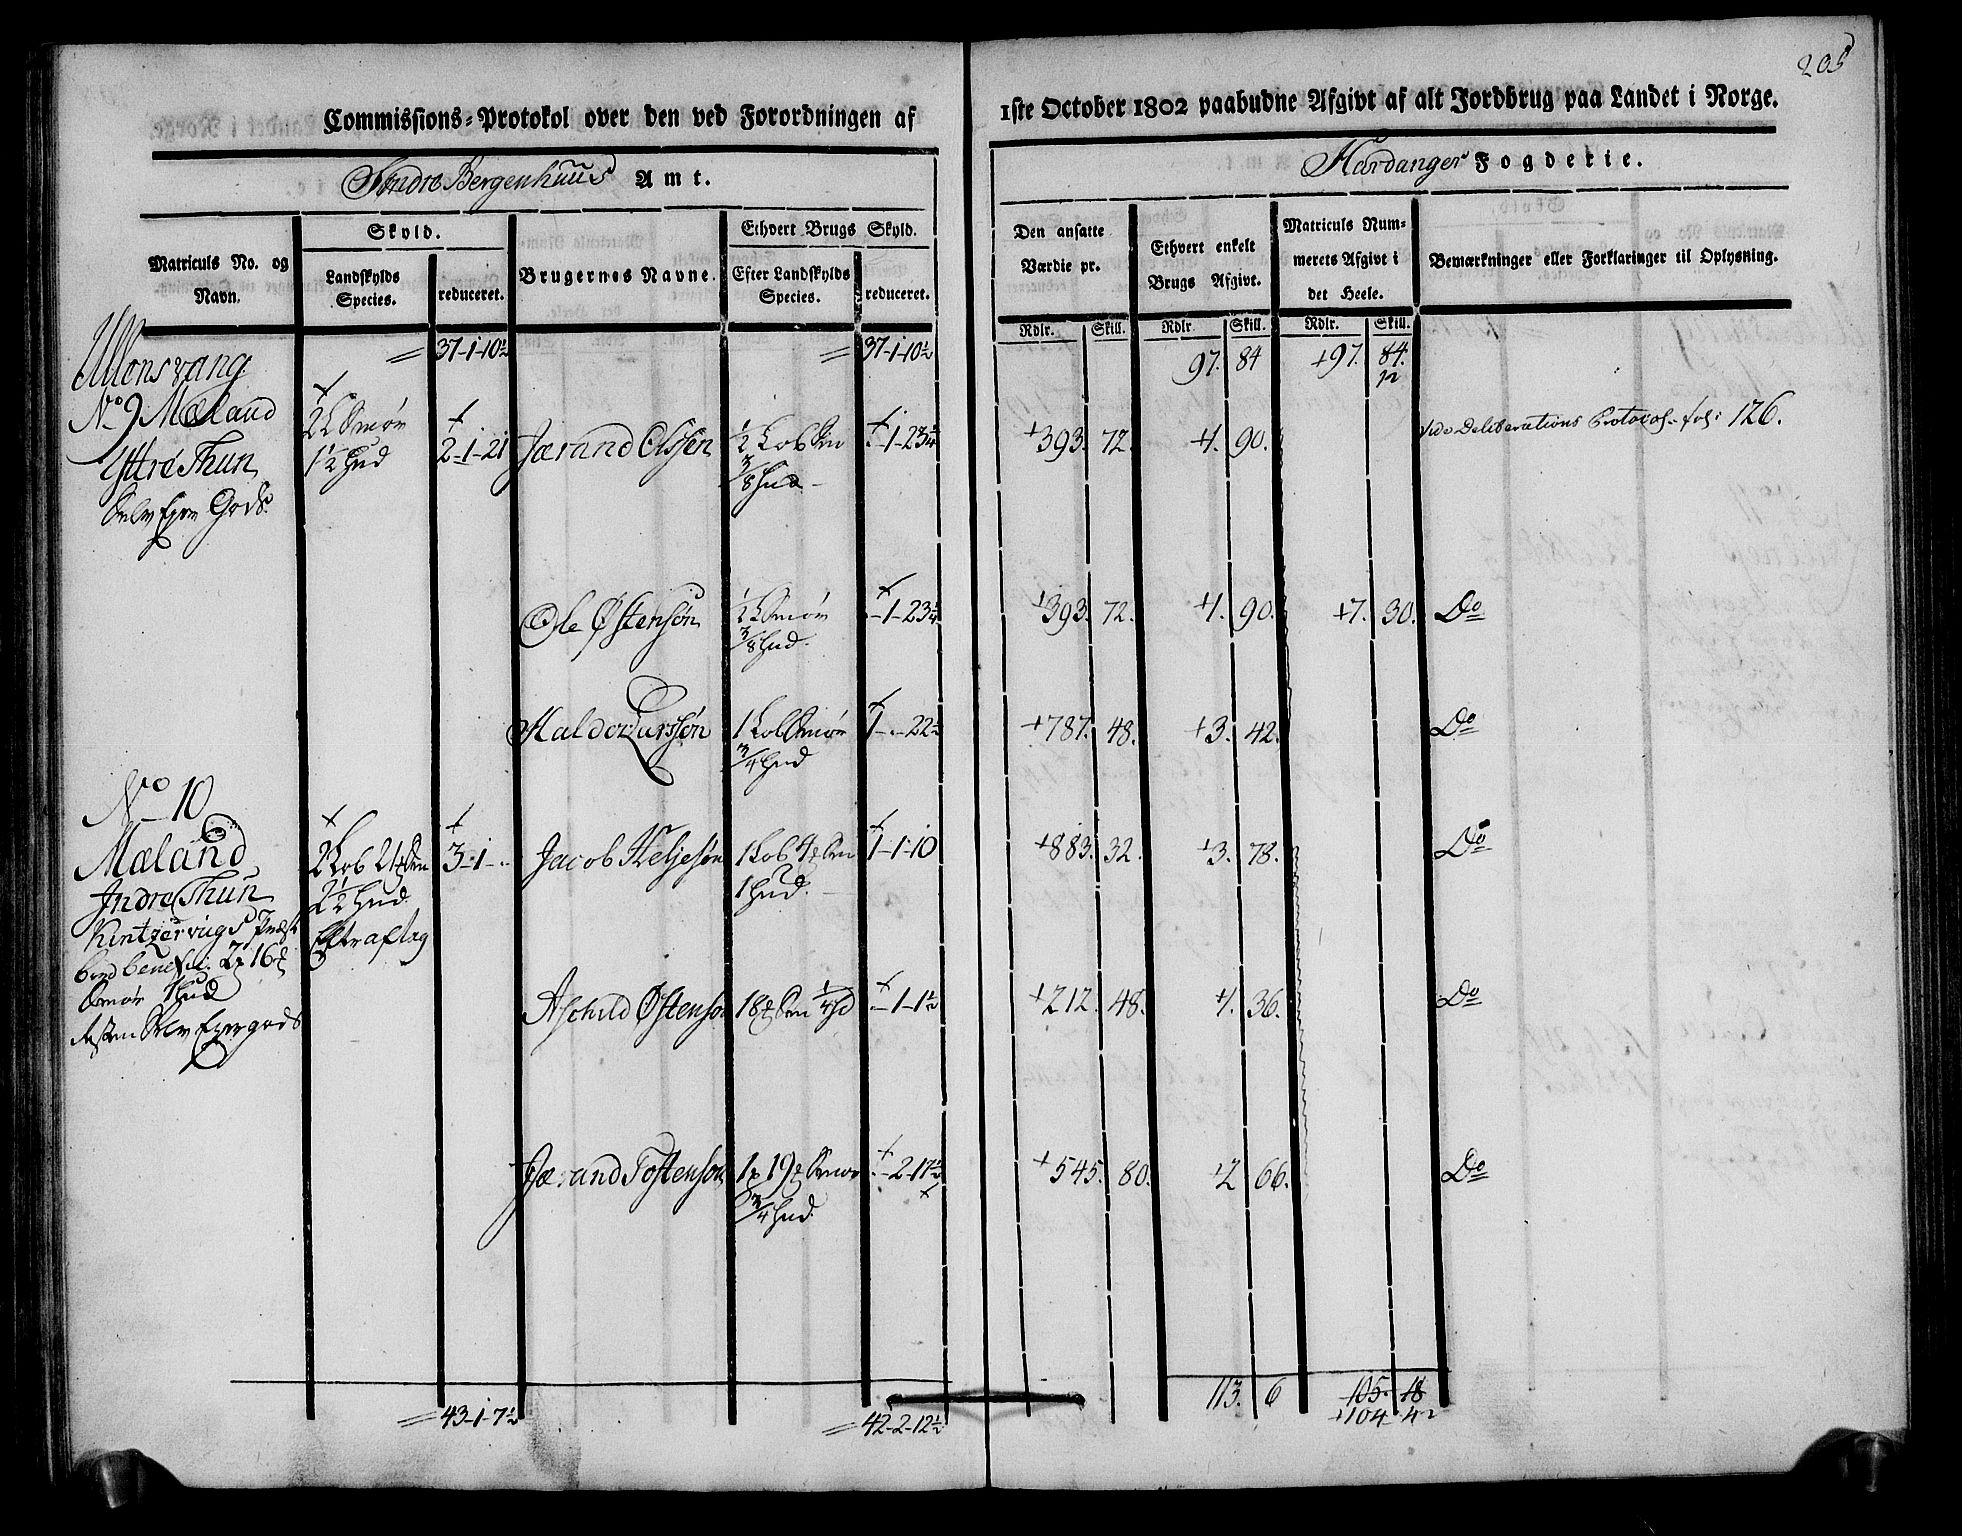 205
Commissions-Protokol over den ved Forordningen af 1ste October 1802 paabudne Afgivt af alt Jordbrug paa Landet i Norge.
Søndre Bergenhuus Amt. Hardanger Fogderie.
Matriculs No. og Navn. Skyld. Landskylds Species. reduceret. Brugernes Navne. Ethvert Brugs Skyld. Efter Landskylds Species. reduceret. Den ansatte Værdie pr. Ethvert enkelt Brugs Afgivt. Matriculs Nummerets Afgivt i det Heele. Bemærkninger eller Forklaringer til Oplysning.
Rdlr. Skill. Rdlr. Skill. Rdlr. Skill.
Ullensvang = 37-1-10½ = 37-1-10½ 97. 84 +97. 84.
No 9 Mæland 2 L Smør
Yttre Thun 1½ Hud 2-1-21 Jærand Olssen ½ Lob Sm 3/8 Hud - -1-23¼ +393. 72. +1. 90. vide Deliberations Protocol fol: 126.
Selv Ejer Gods.
Ole Østensøn ½ L Smør 3/8 Hud. -1-23¼ +393. 72. +1. 90. +7. 30. Do
Haldor Larssøn 1 Lob Smør 3/4 Hud 1-.-22½ +787. 48. +3. 42. Do
No 10
Mæland 2 Lob 3-1-.. Jacob Heljesøn 1 Lob 1 Hud. 1-1-10 +883. 32. +3. 78. Do
Indre Thun 2½ Hud
Kintzervigs Præst Efter aflag
Smør 1 Hud
Resten Selv Ejer gods
Aschild Østensø 18 -1-1½ +212. 48. +1. 36. Do
Jærand Tostensøn 1 19 Smør 3/4 Hud. -2-17½ +545. 80. +2 66. Do
113. 6 105. 18
= 43-1-7½ = 42-2-12½ +104- 42